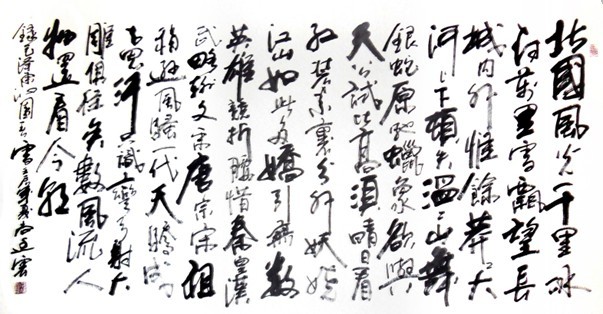 北國風光千里冰
封萬里雪飄望長
城内外惟餘莽莽大
河上下頓失滔滔山舞
銀蛇原馳蠟象欲與
天公試比高須晴日看
紅裝素裹分外妖嬈
江山如此多嬌引無數
英雄競折腰惜秦皇漢
武略輸文采唐宗宋祖
稍遜風騷一代天驕成
吉思汗只識彎弓射大
雕俱往矣數風流人
物還看今朝
錄毛澤東沁園春雪